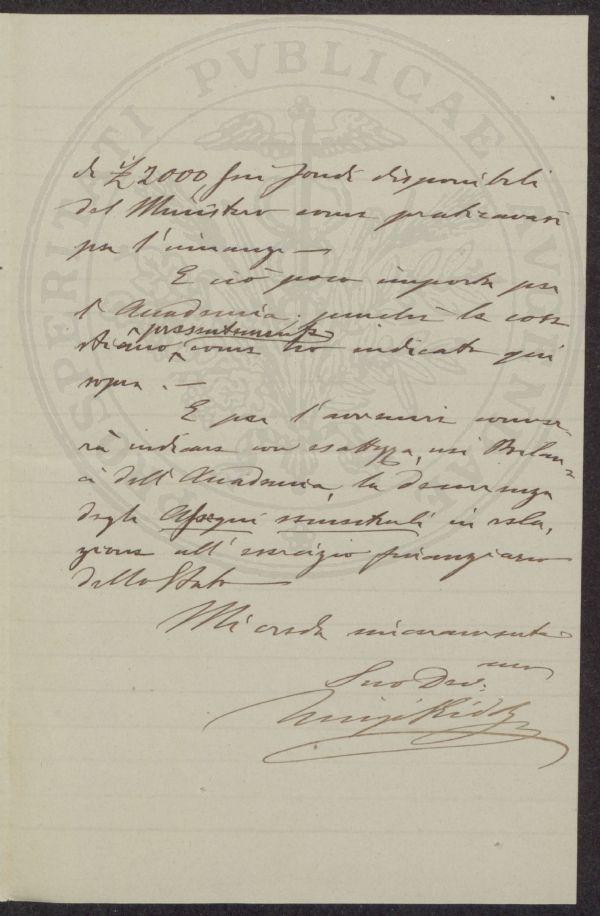 PROSPERITATI PVBLICAE AVGENDAE
di £ 2000, sui fondi disponibili
del Ministero come praticavasi
per l'innanzi —
E ciò poco importa per
l'Accademia, purché le cose
presentemente
stiano come ho indicato qui
sopra. —
E per l'avvenire conver-
rà indicare con esattezza, nei Bilan-
ci dell'Accademia, la decorrenza
degli Assegni semestrali in rela,
zione all'esercizio finanziario
dello Stato —
Mi creda sinceramente
Suo Dev.mo
Luigi